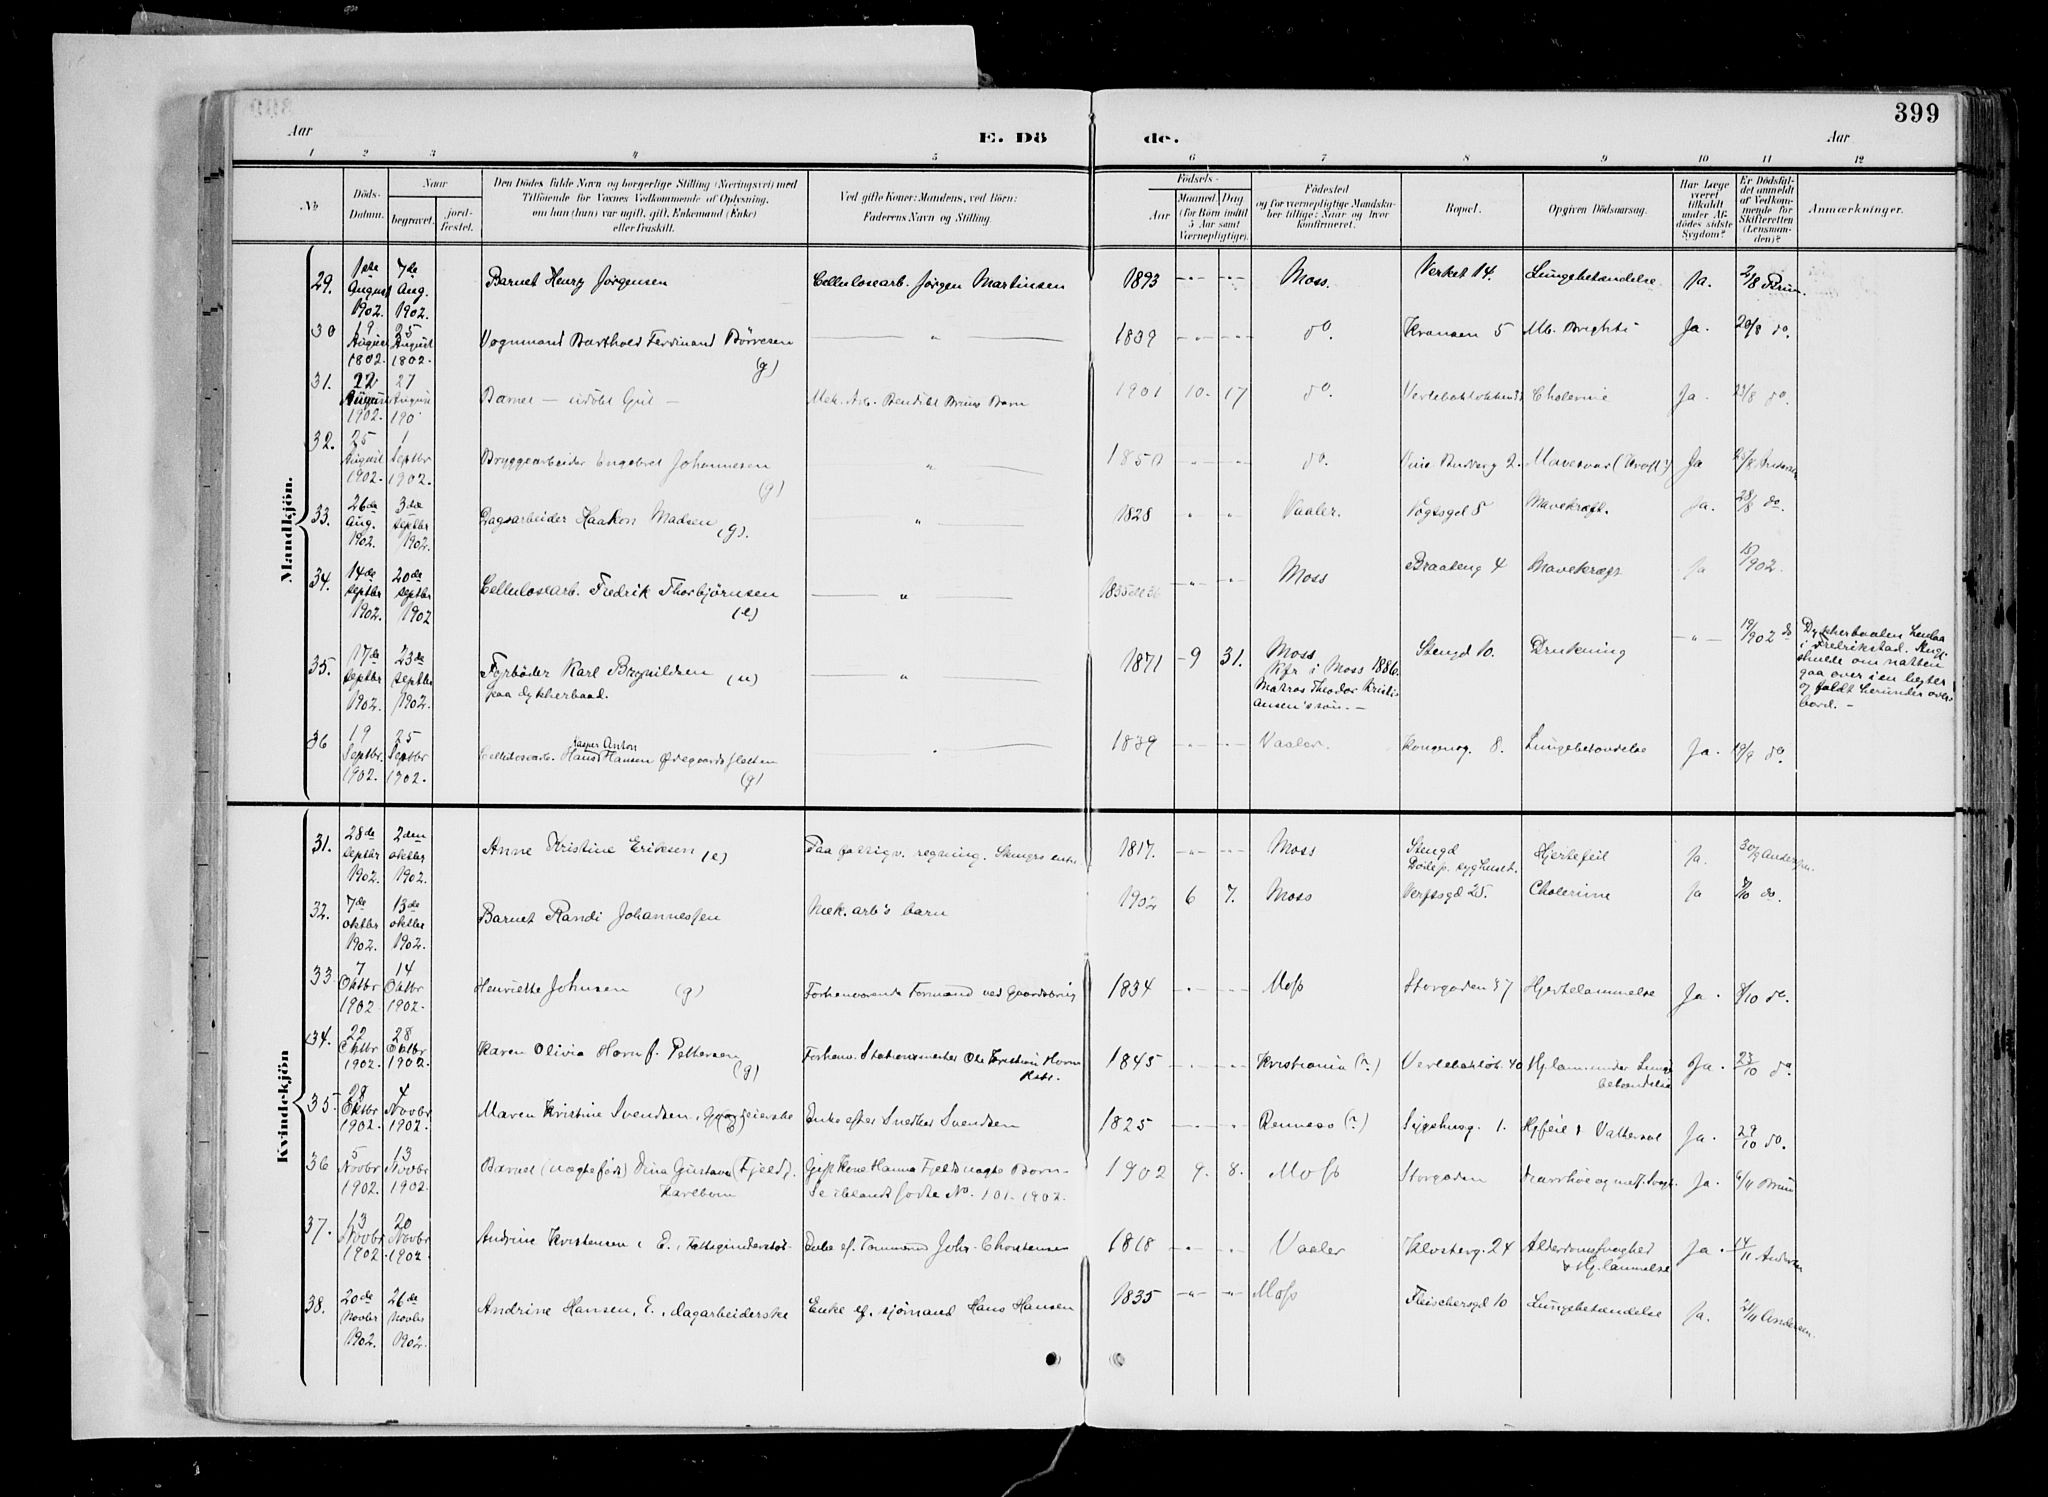 399
Aar
E. Dö
de.
Aar
1 2 3 4 5 6 7 8 9 10 11 12
No
Döds-
Datum.
Naar
begravet.
jord-
fæstet.
Den Dödes fulde Navn og borgerlige Stilling (Næringsvei) med
Tilföiende for Voxnes Vedkommende af Oplysning,
om han (hun) var ugift, gift, Enkemand (Enke)
eller fraskilt.
Ved gifte Koner: Mandens, ved Börn:
Faderens Navn og Stilling.
Födsels-
Aar
Maaned
Dag
(for Börn indtil
5 Aar samt
Værnepligtige).
Födested
og for værnepligtige Mandska-
ber tillige: Naar og hvor
konfirmeret.
Bopæl.
Opgiven Dödsaarsag.
Har Læge
været
tilkaldt
under Af-
dödes sidste
Sygdom?
Er Dödsfal-
det anmeldt
af Vedkom-
mende for
Skifteretten
(Lensman-
den)?
Anmærkninger.
Mandkjön.
29. 1ste August 1902. 7de Aug. 1902. Barnet Henry Jørgensen Cellulosearb. Jørgen Martinsen 1893 Moss. Verket 14. Lungebetændelse Ja. 2/8 Bruun.
30 19 August 1802. 25 August 1802. Vognmand Barthold Ferdinand Börresen (g) " 1839 do. Kransen 5 Mb. Brighti Ja. 20/8 do.
31. 22 August 1902. 27 August 190 Barnet — udöbt Gut — Mek. Arb. Bendikt Bruns Barn 1901 10. 17 do. Cholerine Ja. 23/8 do.
32. 25 August 1902. 1 Septbr 1902. Bryggearbeider Engebret Johannesen (g) " 1850 do. 2. Mavesaar (Kræft?) Ja
33. 26de Aug. 1902. 3die septbr 1902. Dagsarbeider Haakon Madsen (g). " 1828 Vaaler. Vogtsgd 5 Mavekræft. Ja. 28/8 do.
34. 14de septbr 1902. 20de septbr 1902 Cellulosearb. Fredrik Thorbjørnsen (e) " Moss Braateng 4 Mavekræft Ja 15/9 02.
35. 17de septbr 1902. 23de septbr 1902. Fyrböder Karl Brynildsen (u)
paa dykkerbaad. " 1871 9 31. Moss
Kfr i Moss 1886.
Matros Theodor Kristi-
ansen's sön. — Stengd 10. Drukning " 19/9 02 do Dykkerbaaden henlaa
i Fredrikstad. Angj.
skulde om natten
gaa over i en lægter
og faldt herunder over-
bord. —
36 19 Septbr. 1902. 25 Septbr 1902. Cellulosearb. Hans Hansen Ödegaardssletten (g)
Kasper Anton
" 1839 Vaaler. Kongensg. 8. Lungebetændelse Ja. 19/9 do.
Kvindekjön
31. 28de septbr 1902. 2den oktbr 1902. Anne Kristine Eriksen (e) Paa fattigv. regning. 1817. Moss Stengd Hjertefeil Ja. 30/9 Andersen.
32. 7de oktbr 1902. 13de oktbr 1902. Barnet Randi Johannessen Mek. arb's barn 1902 6 7. Moss Verftsgd 25. Cholerine Ja 7/10 do.
33. 7 Oktbr 1902 14 Oktbr 1902. Henriette Johnsen (g) Forhenværende Formand ved 1834 Moss Storgaden 37 Hjertelammelse Ja. 8/10 do.
34. 22 Oktbr 1902. 28 Oktbr 1902. Karen Olivia Horn f. Pettersen (g) Forhenv. Stationsmester Ole Kristian Horn 1845 Kristiania (?) 40 Hj.lam. under Lunge
betændelse Ja. 23/10 do
35. 28 Oktbr 1902. 4 Novbr 1902. Maren Kristine Svendsen, Enke efter Snedker Svendsen 1825 Rennesö (?) Sygehusg. 1. Hjfeil & Vattersot Ja. 29/10 do.
36 5 Novbr 1902. 13 Novbr 1902. Barnet (uægtefödt) Dina Gustava (Fjeld).
Karlbom Gift Kone Hanna Fjelds uægte Barn.
Se iblandt fødte No. 101. 1902. 1902 9. 8. Moss Storgaden Ja. 6/11 Bruun
37. 13 Novbr 1902 20 Novbr 1902. Andrine Kristensen, E., Enke ef. Tömmermd Johs. Christensen 1818 Vaaler Klosterg. 24 Alderdomssvaghed
& Hj.lammelse Ja. 14/11 Andersen
38. 20de novbr 1902. 26de novbr 1902. Andrine Hansen, E., dagarbeiderske Enke ef. sjömand Hans Hansen 1835 Moss Fleischersgd 10 Lungebetændelse Ja. 21/11 Andersen.